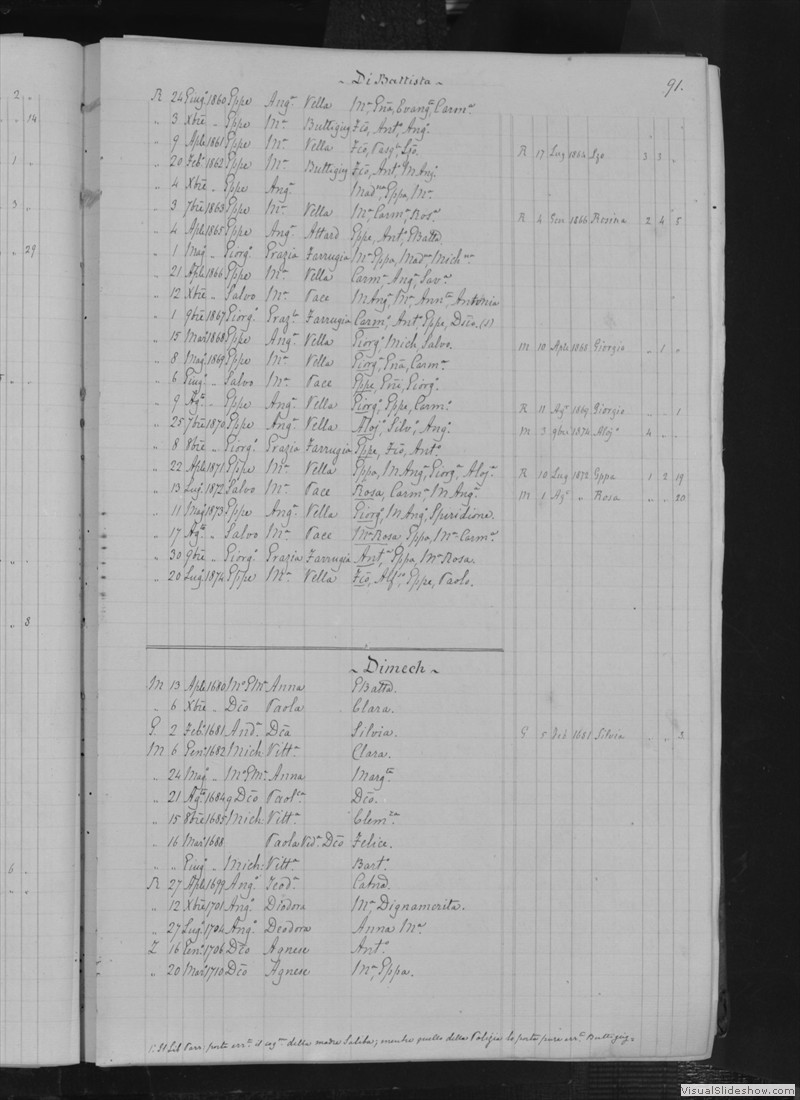 2 "
" 14
1 "
3 "
" 29
" 3
6 "
~ Di Battista ~
91.
R 24 Giug° 1860 Gppe Ang.ª Vella Mª, Gña, Evang.ª, Carm.ª
" 3 Xbre " Gppe Mª Buttigieg Fco, Ant°, Ang°.
" 9 Aple 1861 Gppe Mª Vella Fco, Pasq.le, Lzo. R 17 Lug 1864 Lzo 3 3 "
" 20 Feb° 1862 Gppe Mª Buttigieg Fco, Ant°, M Ang.
" 4 Xbre " Gppe Ang.ª Mad.na, Gppa, Mª.
" 3 7bre 1863 Gppe Mª Vella Mª, Carm.ª, Ros.ª R 4 Gen 1866 Rosina 2 4 5
" 4 Aple 1865 Gppe Ang.ª Attard Gppe, Ant°, GBatta.
" 1 Mag° " Giorg° Grazia Farrugia Mª, Gppa, Mad.na
" 21 Aple 1866 Gppe Mª Vella Carm.ª, Ang.ª, Sav.ª
" 12 Xbre " Salvo Mª Pace M Ang.ª, Mª Ann.ta, Antonia
" 1 9bre 1867 Giorg° Graz.ia Farrugia Carm°, Ant°, Gppe, Dco. (1)
" 15 Mar° 1868 Gppe Ang.ª Vella Giorg°, Mich, Salvo. M 10 Aple 1868 Giorgio " 1 "
" 8 Mag° 1869 Gppe Mª Vella Giorg.ª, Gña, Carm.ª
" 6 Giug° " Salvo Mª Pace Gppe, Gñi, Giorg°.
" 9 Ag° " Gppe Ang.ª Vella Giorg°, Gppe, Carm° R 11 Ag° 1869 Giorgio " " 1
" 25 7bre 1870 Gppe Ang.ª Vella Aloj°, Silv°, Ang°. M 3 9bre 1874 Aloj° 4 " "
" 8 8bre " Giorg° Grazia Farrugia Gppe, Fco, Ant°.
" 22 Aple 1871 Gppe Mª Vella Gppa, M Ang.ª, Giorg.ª, Aloj.ª R 10 Lug 1872 Gppa 1 2 19
" 13 Lug° 1872 Salvo Mª Pace Rosa, Carm.ª, M Ang.ª M 1 Ag° " Rosa " " 20
" 11 Mag° 1873 Gppe Ang.ª Vella Giorg°, M Ang°, Spiridione.
" 17 Ag° " Salvo Mª Pace Mª Rosa, Gppa, Mª Carm.ª
" 30 9bre " Giorg° Grazia Farrugia Ant.ª, Gppa, Mª Rosa.
" 20 Lug° 1874 Gppe Mª Vella Fco, Alf.so, Gppe, Paolo.
~ Dimech ~
M 13 Aple 1680 Anna GBatta.
" 6 Xbre " Dco Paola Clara.
G 2 Feb° 1681 And.ª Dca Silvia. G 5 Feb 1681 Silvia " " 3
M 6 Gen° 1682 Mich: Vitt.ª Clara.
" 24 Mag° " Anna Marg.ta
" 21 Ag° 1684 Dco Paol.ca Dco.
" 15 8bre 1685 Mich: Vitt.ª Clem.za
" 16 Mar° 1688 Paola Ved.ª Dco Felice.
" " Giug° " Mich: Vitt.ª Bart°.
R 27 Aple 1699 Ang° Teod.ª Catna.
" 12 Xbre 1701 Ang° Diodora Mª Dignamerita.
" 27 Lug° 1704 Ang° Deodora Anna Mª.
Z 16 Gen° 1706 Dco Agnese Ant°.
" 20 Mar° 1710 Dco Agnese Mª, Gppa.
(1) Il Lib Parr: porta err.te il cog.e della madre Saliba; mentre quello della Polizia lo porta pure err.te Buttigieg.
VisualSlideshow.com